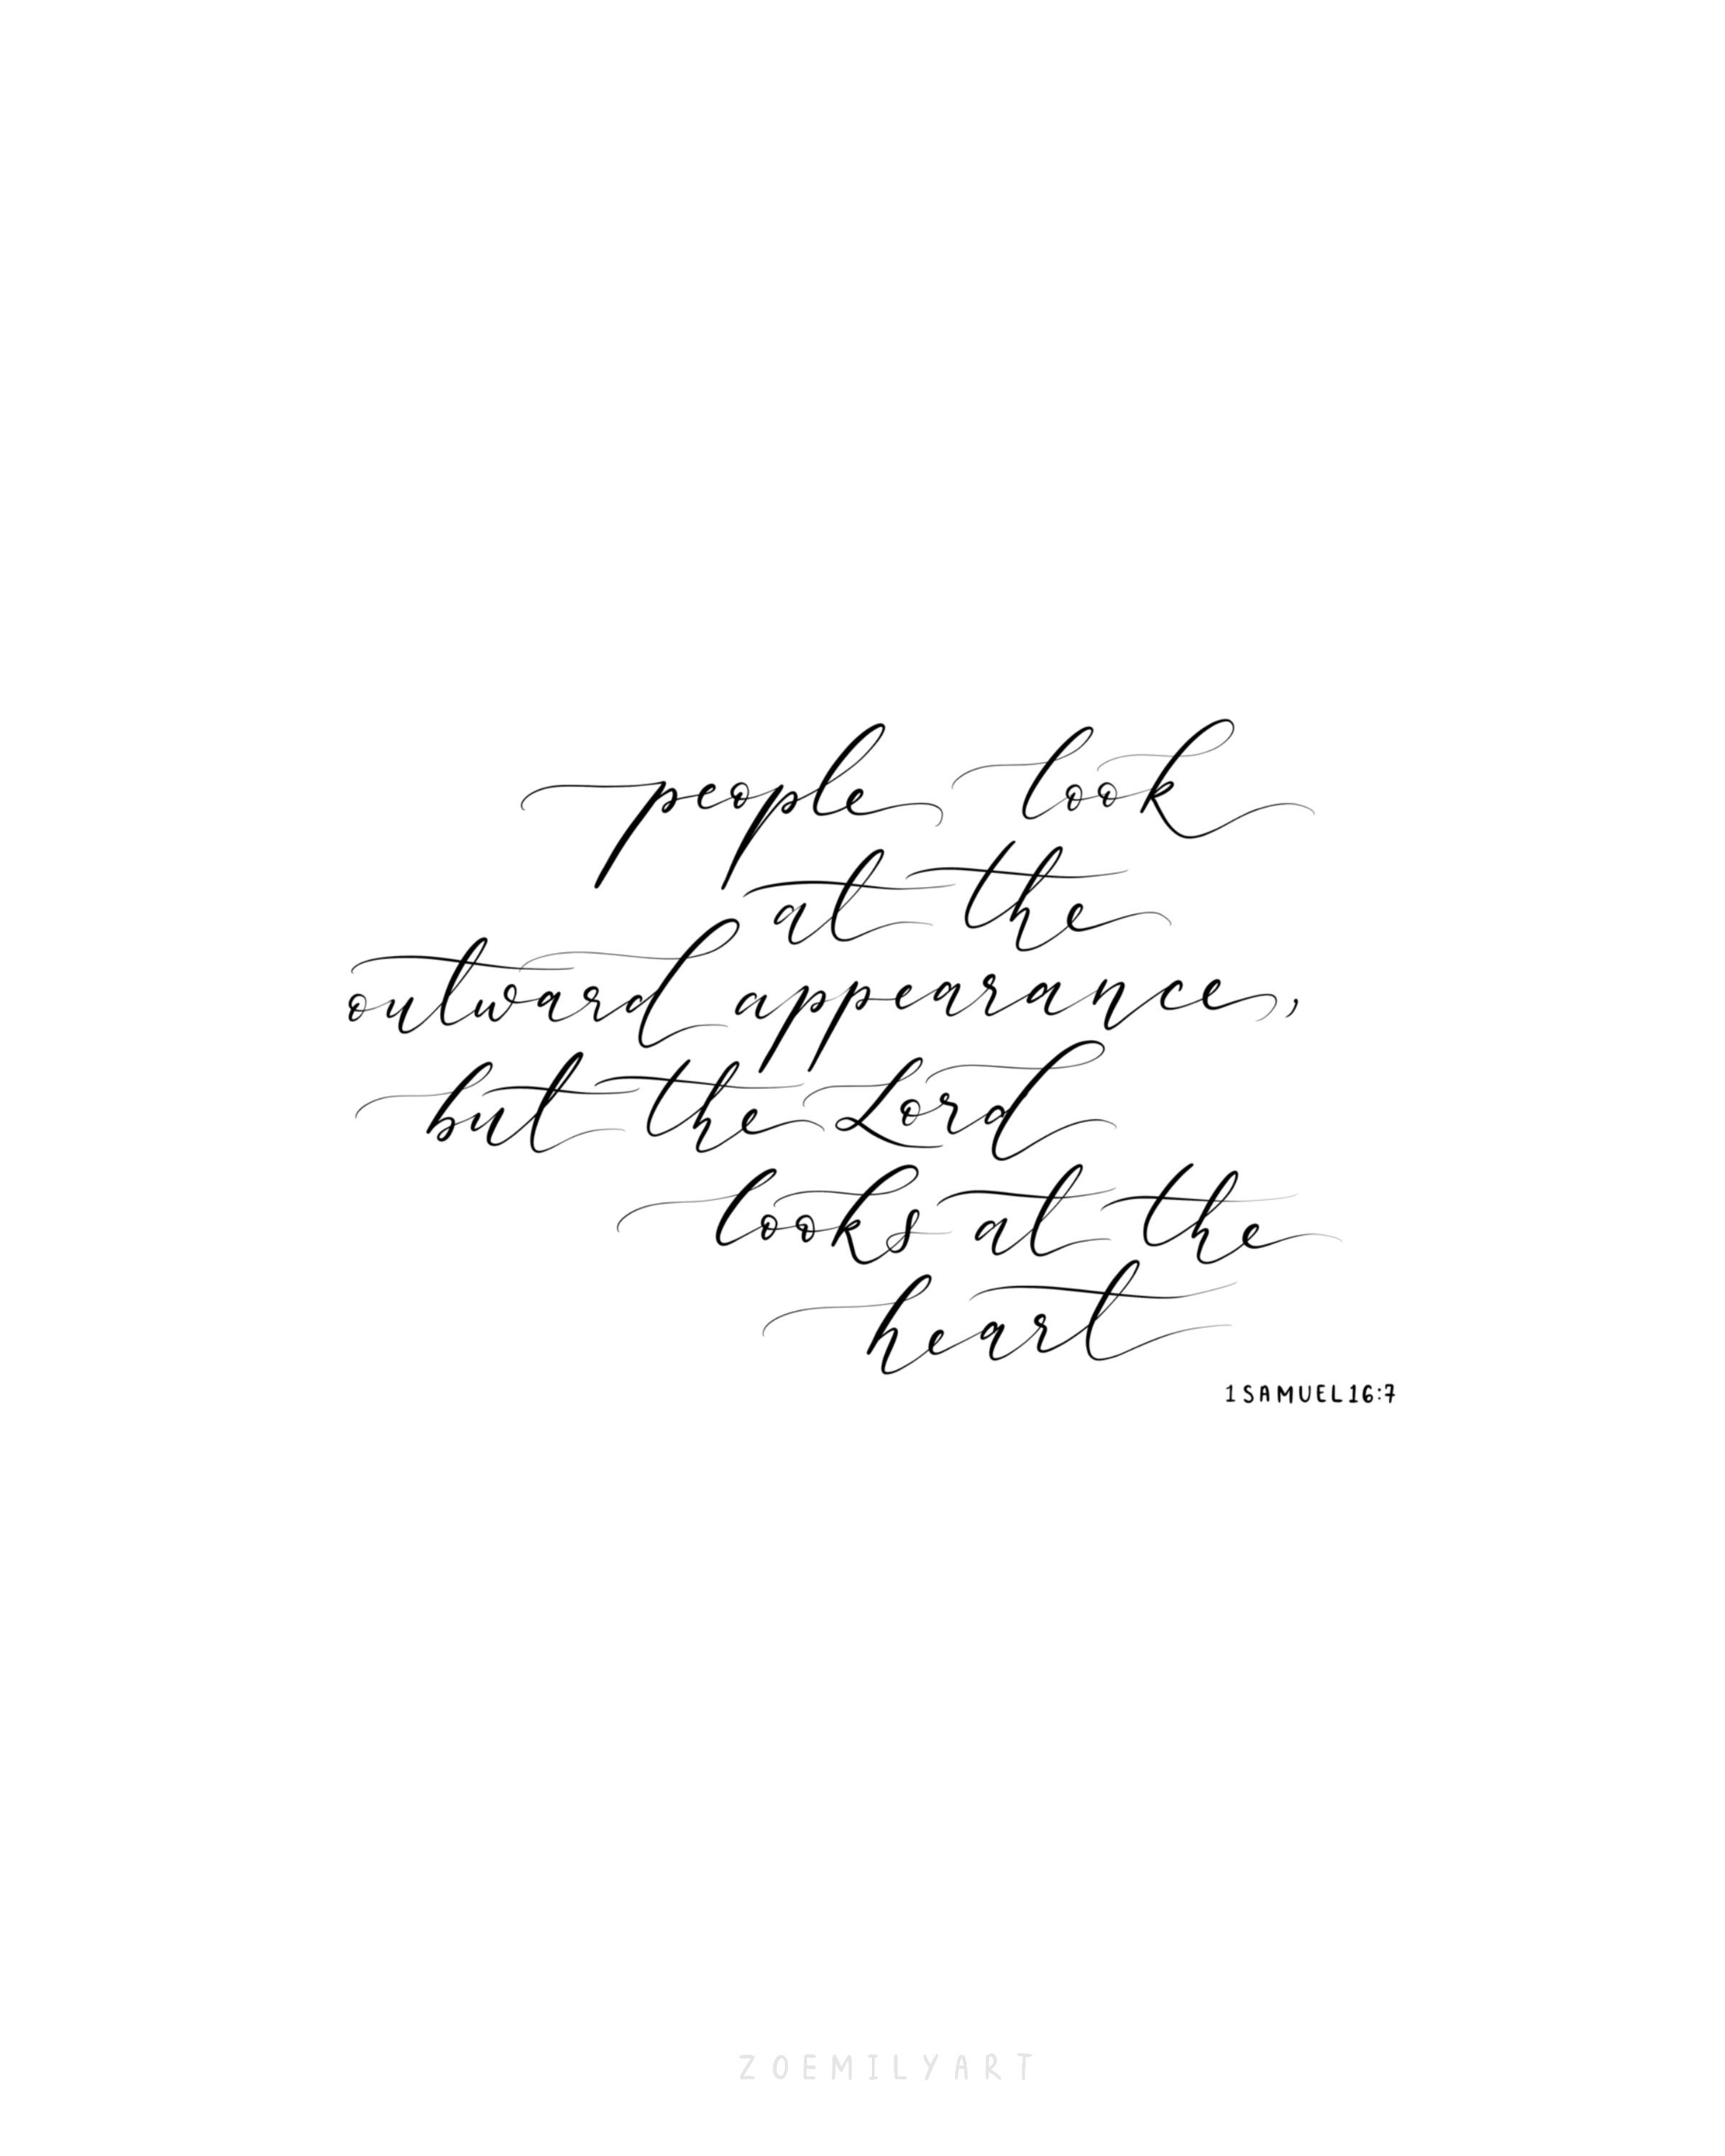 people look
at the
outward appearance,
but the Lord
looks at the
heart
1 SAMUEL 16:7
ZOEMILYART